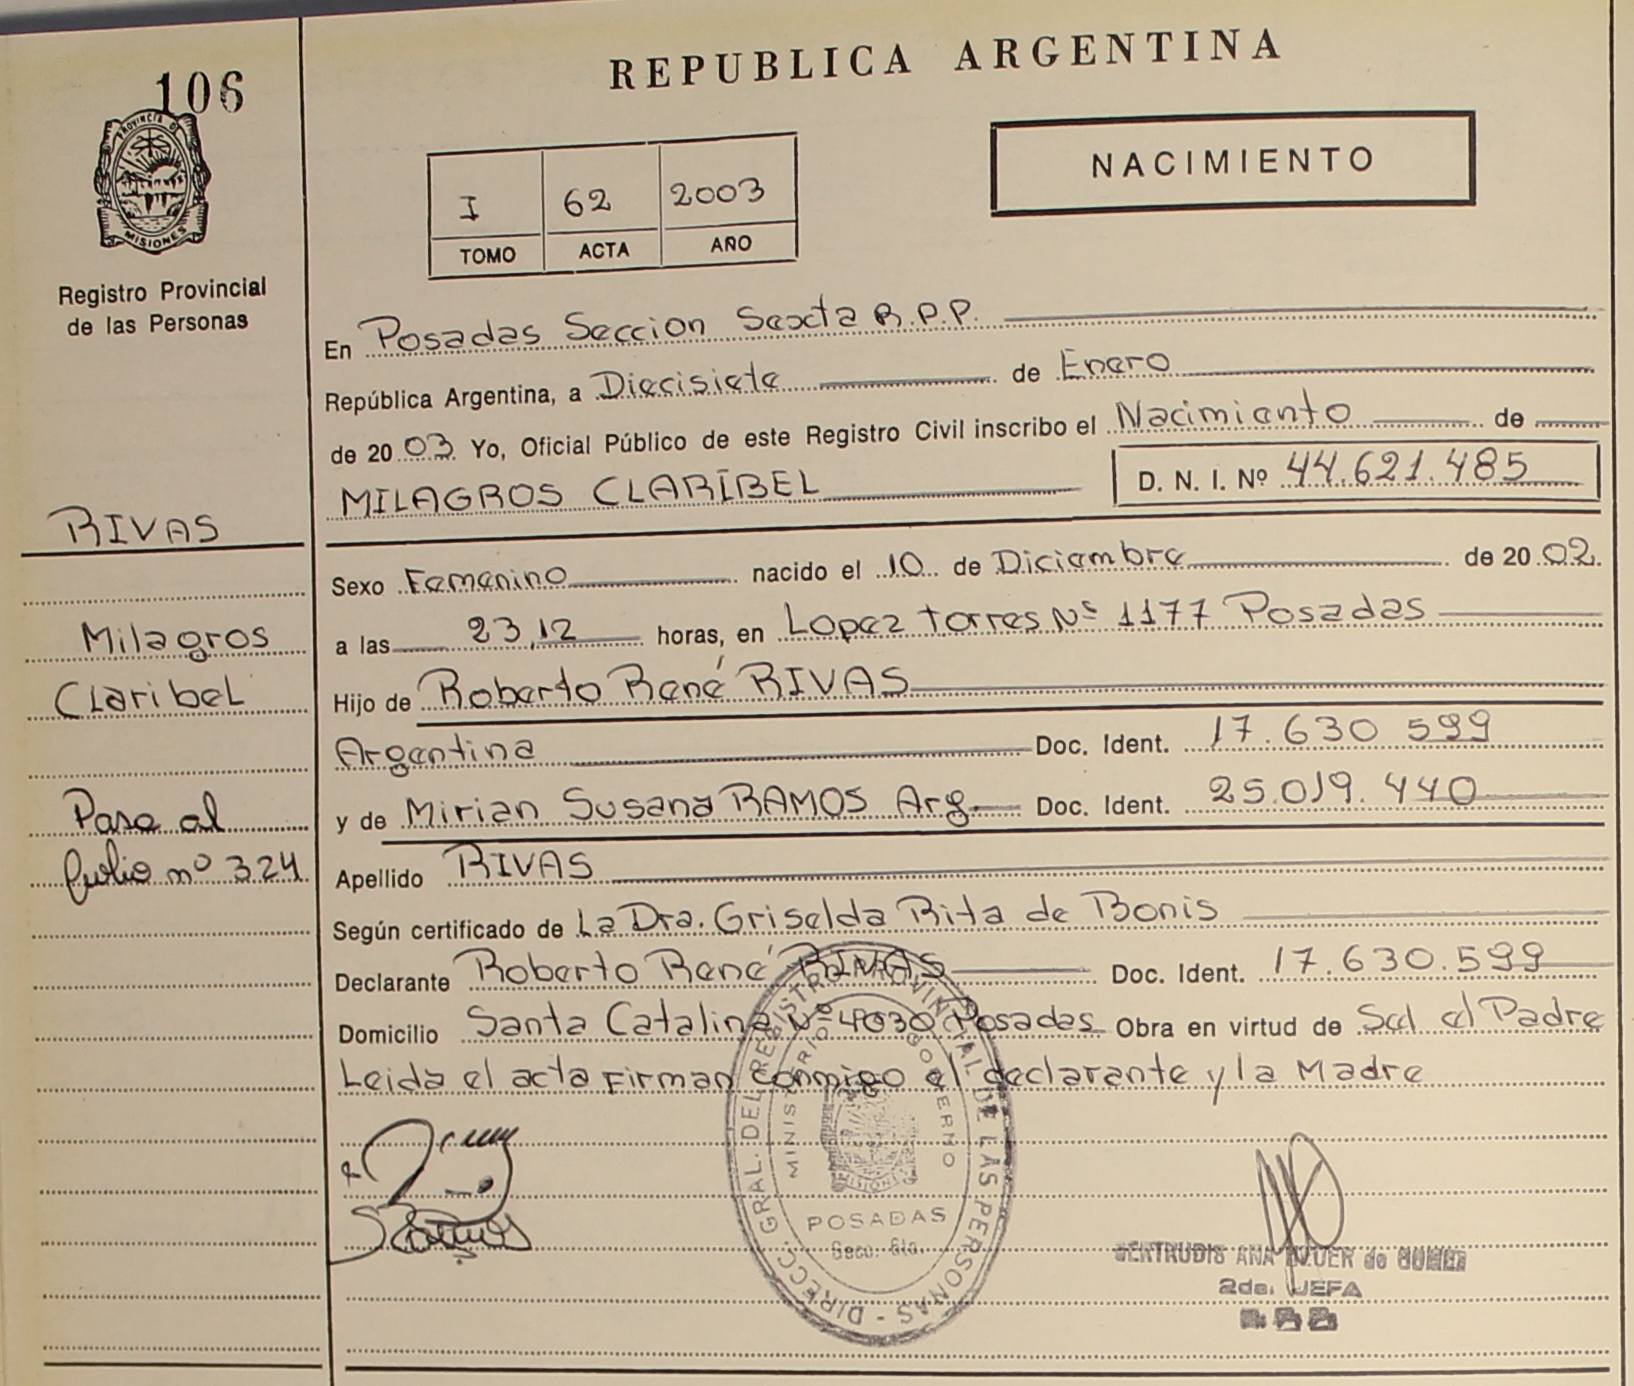 106
PROVINCIA DE
MISIONES
Registro Provincial
de las Personas
RIVAS
Milagros
Claribel
Pasa al
folio nº 324
REPUBLICA ARGENTINA
NACIMIENTO
I 62 2003
TOMO ACTA AÑO
En Posadas Seccion Sexta R.P.P.
República Argentina, a Diecisiete de Enero
de 20 03 Yo, Oficial Público de este Registro Civil inscribo el Nacimiento de
MILAGROS CLARIBEL D. N. I. Nº 44.621.485
Sexo Femenino nacido el 10 de Diciembre de 20 02.
a las 23,12 horas, en Lopez Torres Nº 1177 Posadas
Hijo de Roberto René RIVAS
Argentina Doc. Ident. 17.630 599
y de Mirian Susana RAMOS Arg Doc. Ident. 25.019.440
Apellido RIVAS
Según certificado de La Dra. Griselda Rita de Bonis
Declarante Roberto René RIVAS Doc. Ident. 17.630.599
Domicilio Santa Catalina Nº 4030 Posadas Obra en virtud de Sed el Padre
Leida el acta Firman conmigo el declarante y la Madre
DIRECC. GRAL. DEL REGISTRO PROVINCIAL DE LAS PERSONAS -
MINISTERIO GOBIERNO
MISIONES
POSADAS
Secc. 6ta.
GERTRUDIS ANA de
2da. JEFA